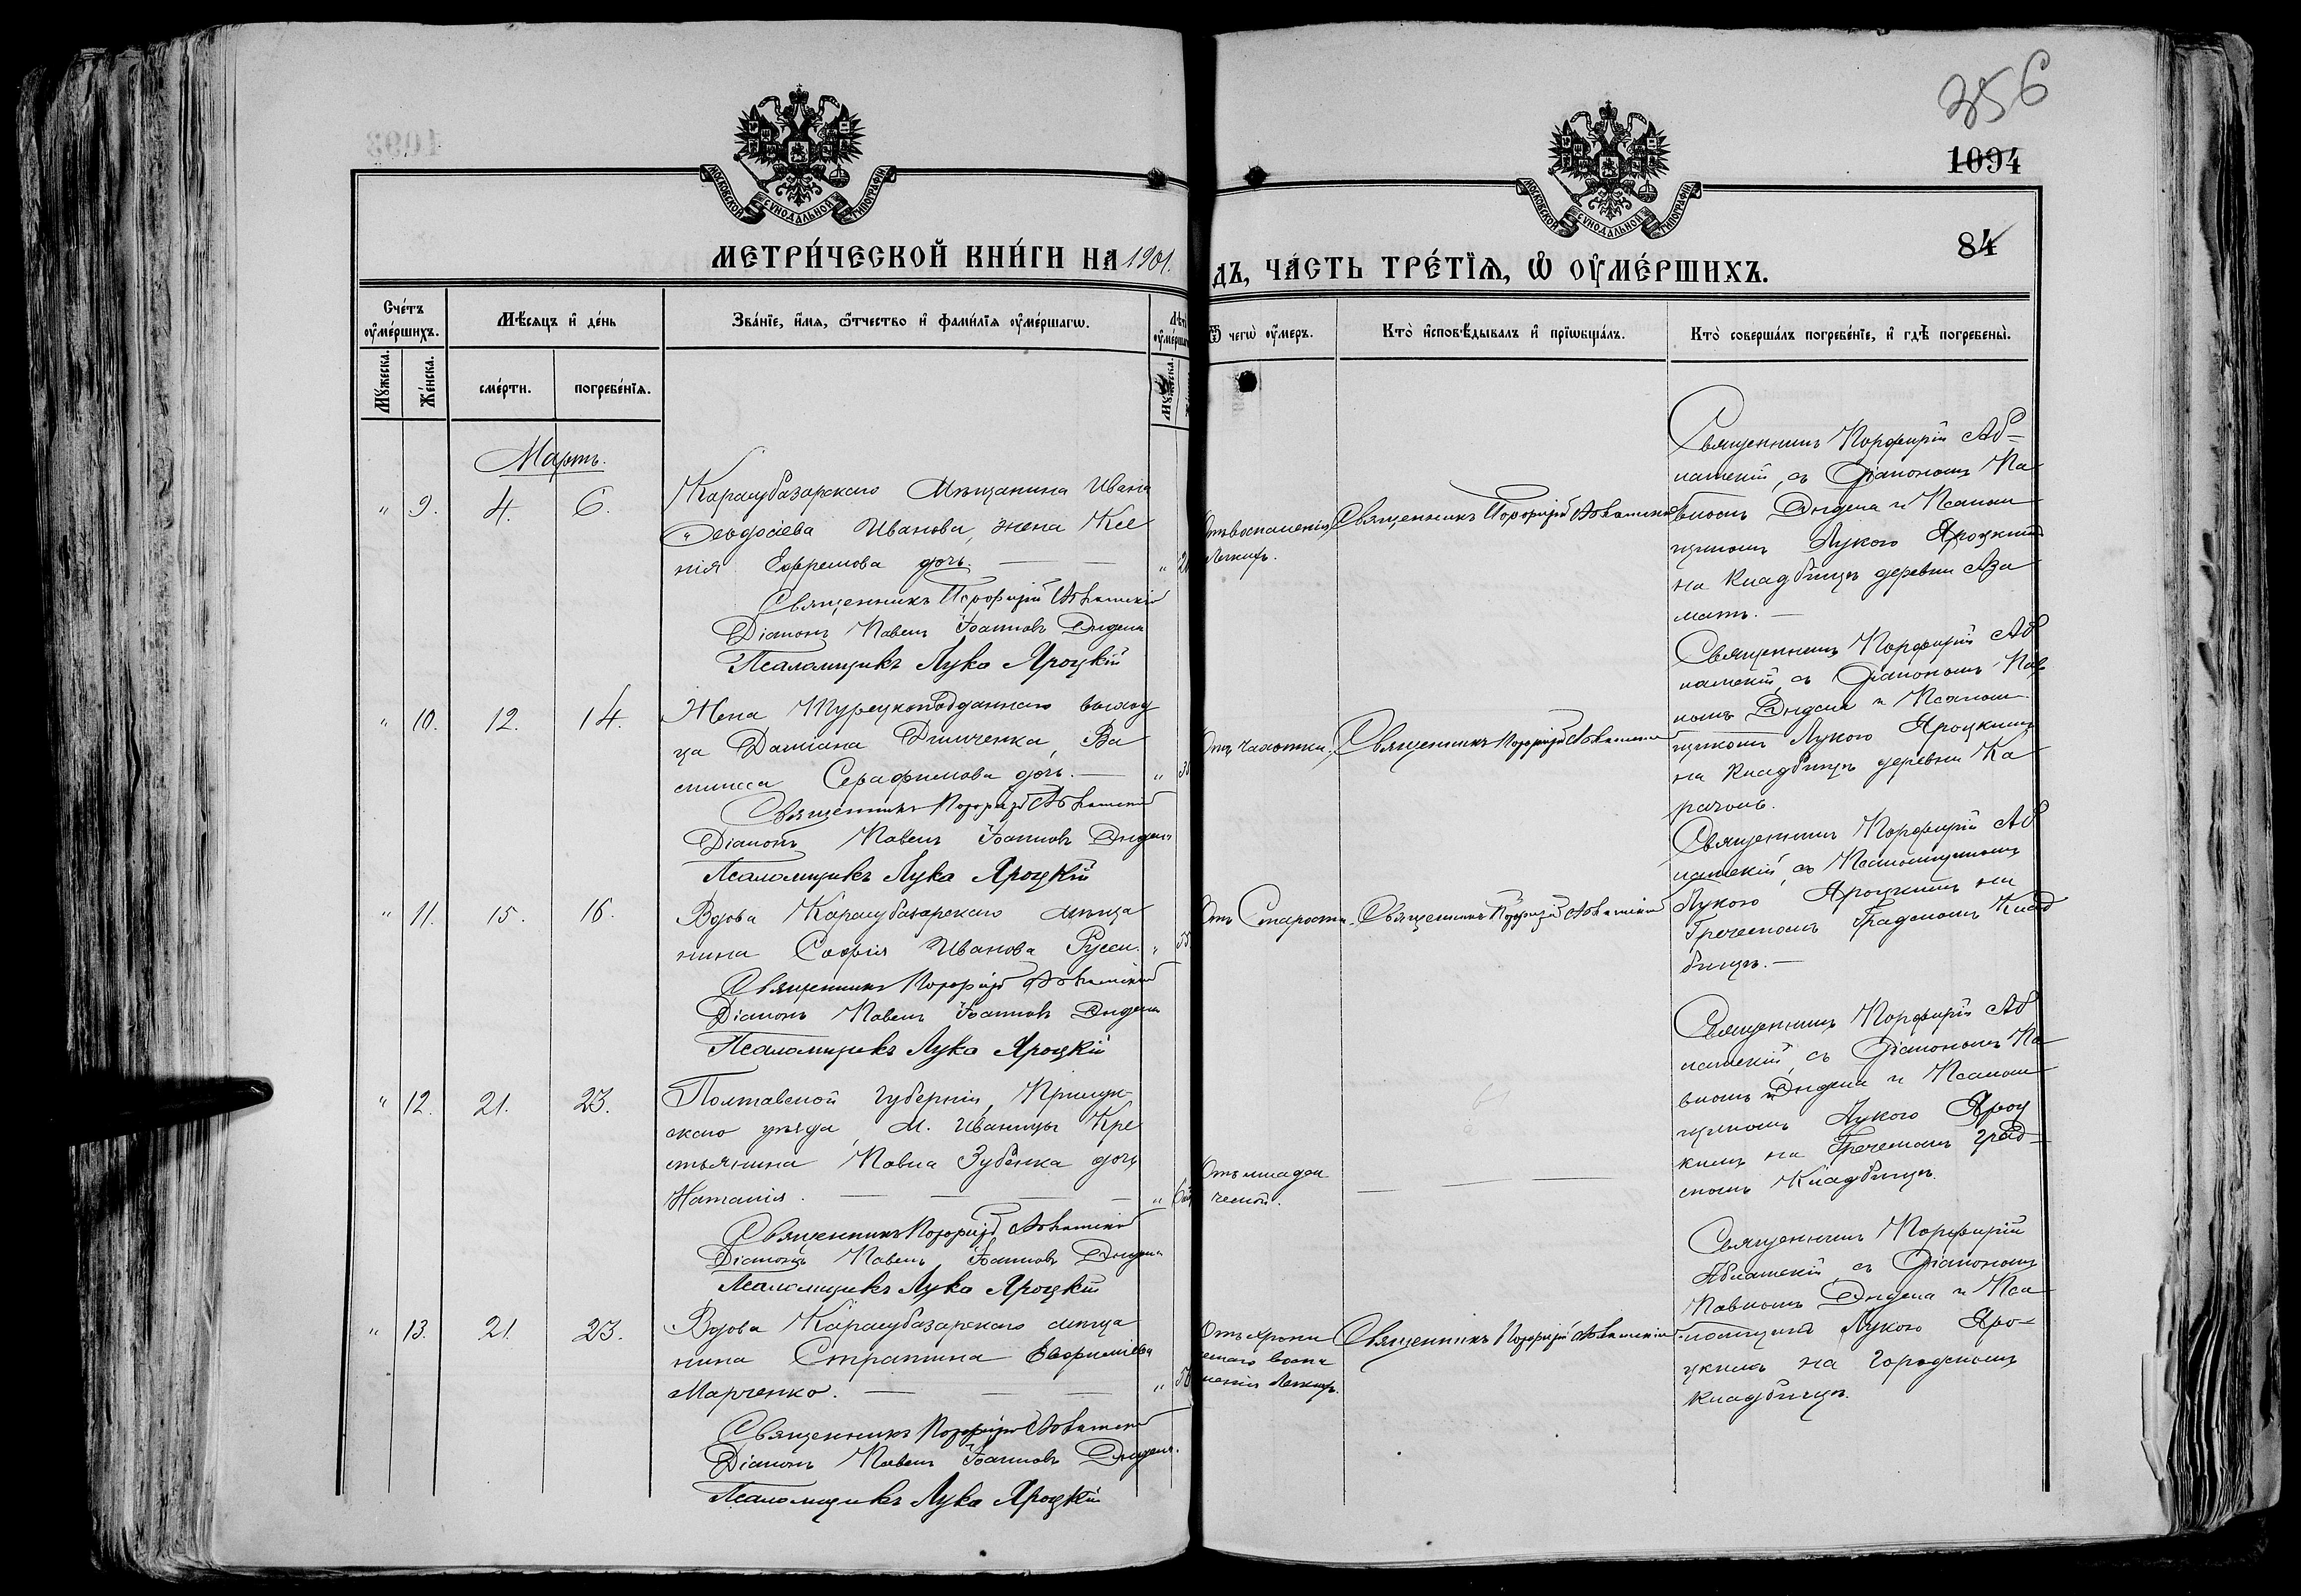 356
1094
84
МОСКОВСКОЙ СУНОДАЛЬНОЙ ТИПОГРАФІИ
МОСКОВСКОЙ СУНОДАЛЬНОЙ ТИПОГРАФІИ
МЕТРИ́ЧЕСКОЙ КНИ́ГИ НА 1901.
ДЪ, ЧА́СТЬ ТРЕ́ТІѦ, Ѡ҆ ОУ҆МЕ́РШИХЪ.
Сче́тъ оу҆ме́ршихъ.
Мꙋ́жеска.
Же́нска.
Мѣ́сяцъ и҆ де́нь
сме́рти.
погребе́нїѧ.
Зва́нїе, и҆́мѧ, ѻ҆́тчество и҆ фами́лїѧ оу҆ме́ршагѡ.
Мꙋ́жеска.
Ѿ чегѡ̀ оу҆́меръ.
Кто̀ и҆сповѣ́дывалъ и҆ прїѡбща́лъ.
Кто̀ соверша́лъ погребе́нїе, и҆ гдѣ̀ погребены̀.
Мартъ.
" 9. 4. 6.
Карасубазарскаго Мѣщанина Ивана
Ѳеодосіева Иванова, жена Ксе
нія Ефремова дочь. — —
Священникъ Порфирій
Діаконъ Павелъ Іоанновъ
Псаломщикъ Лука Яроцкій
Отъ воспаленія
легкихъ.
Священникъ Порфирій
Священникъ Порфирій Аб-
латскій, съ Діакономъ Па
вломъ и Псалом
щикомъ Лукою Яроцкимъ
на Кладбищѣ деревни Аза
матъ. —
" 10. 12. 14.
Жена Турецкоподданнаго выход
ца Даміана Димченка, Ва
силисса Серафимова дочь. —
Священникъ Порфирій
Діаконъ Павелъ Іоанновъ
Псаломщикъ Лука Яроцкій
Отъ чахотки.
Священникъ Порфирій
Священникъ Порфирій Аб
латскій, съ Діакономъ Пав
ломъ и Псалом
щикомъ Лукою Яроцкимъ
на Кладбищѣ деревни Ка
рачоль.
" 11. 15. 16.
Вдова Карасубазарскаго мѣща
нина Софія Иванова Русси.
Священникъ Порфирій
Діаконъ Павелъ Іоанновъ
Псаломщикъ Лука Яроцкій
Отъ Старости.
Священникъ Порфирій
Священникъ Порфирій Аб
латскій, съ Псаломщикомъ
Лукою Яроцкимъ на
Греческомъ Градскомъ Клад
бищѣ. —
" 12. 21. 23.
Полтавской губерніи, Прилук-
скаго уѣзда, М. Иваницы Кре
стьянина Павла Зубенка дочь
Наталія. — — —
Священникъ Порфирій
Діаконъ Павелъ Іоанновъ
Псаломщикъ Лука Яроцкій
Отъ младен
ческой.
— — —
Священникъ Порфирій Аб
латскій, съ Діакономъ Па
вломъ и Псалом
щикомъ Лукою Яроц
кимъ на Греческомъ град-
скомъ Кладбищѣ.
" 13. 21. 23.
Вдова Карасубазарскаго мѣща
нина Стратина Евфиміева
Марченко. — — —
Священникъ Порфирій
Діаконъ Павелъ Іоанновъ
Псаломщикъ Лука Яроцкій
Отъ хрони
ческаго воспа
ленія легкихъ.
Священникъ Порфирій
Священникъ Порфирій
Аблатскій съ Діакономъ
Павломъ и Пса
ломщикомъ Лукою Яро-
цкимъ на городскомъ
кладбищѣ.